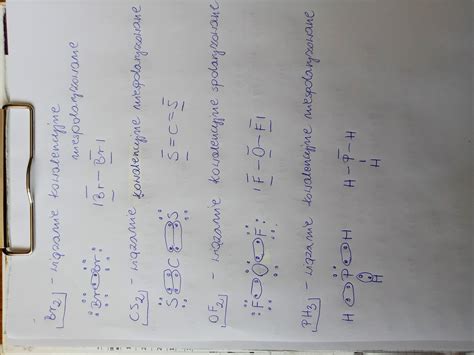 Br2 - wiązanie kowalencyjne
niespolaryzowane
Br Br
|Br - Br|
CS2 - wiązanie kowalencyjne niespolaryzowane
S C S
S = C = S
OF2 - wiązanie kowalencyjne spolaryzowane
F O F
|F - O - F|
PH3 - wiązanie kowalencyjne niespolaryzowane
H P H
H
H - P - H
|
H